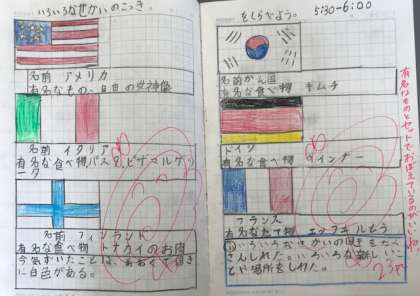 いろいろなせかいのこっき
名前 アメリカ
有名なもの、自由の女神像
名前 イタリア
有名な食べ物パスタ、ピザマルゲリ
ータ
名前 フィンランド
有名な食べ物 トナカイのお肉
今気ずいたことは、
に白色がある。
をしらべよう。
5:30-6:00
名前かん国
有名な食べ物 キムチ
ドイツ
有名な食べ物 ウインナー
フランス
有名なたて物 エッフェルとう
いろいろなせかいの国きをたく
さんしれた。いろいろな
とい場所をしれた。
有名なものとセットでおぼえているのがいいね